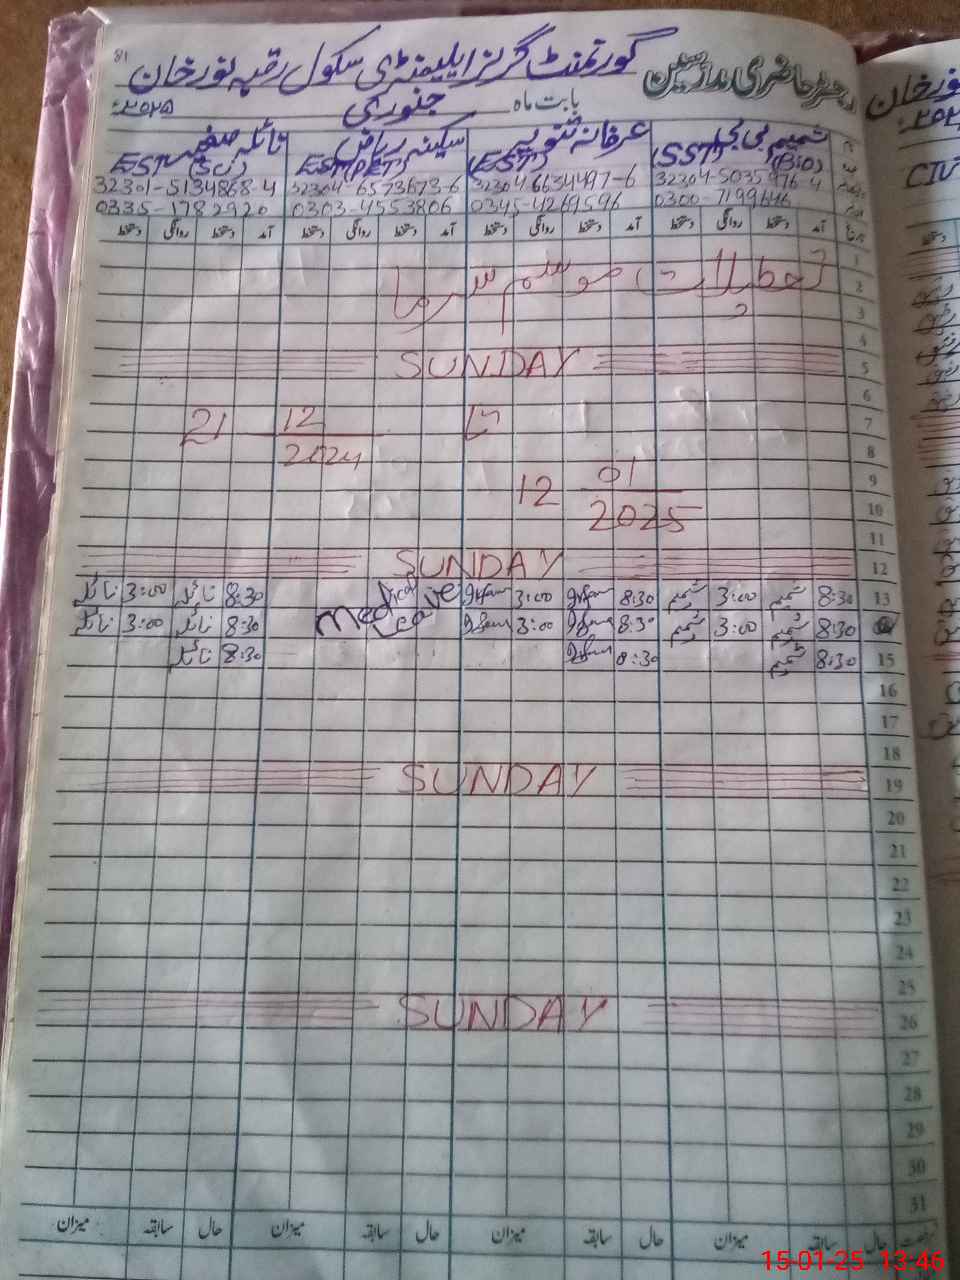 81
گورنمنٹ گرلز ایلیمنٹری سکول رقبہ نور خان
رجسٹر حاضری مدرسین
بابت ماہ جنوری ۲۰۲۵ء
شمیم بی بی عرفانہ سکینہ ریاض نائلہ صفیہ
SST (BIO) (EST) EST(PET) EST (SC)
32304-5035976-4 32304 6634497-6 32304-6573673-6 32301-5134868-4
0300-7199646 0345-4269596 0303-4553806 0335-1782920
آمد دستخط روانگی دستخط آمد دستخط روانگی دستخط آمد دستخط روانگی دستخط آمد دستخط روانگی دستخط
1
تعطیلات موسم سرما
2
3
4
SUNDAY 5
6
21 12 2024 تا 7
8
12 01 2025 9
10
11
SUNDAY 12
13 8:30 شمیم 3:00 شمیم 8:30 Irfana 3:00 Irfana Medical Leave 8:30 نائلہ 3:00 نائلہ
8:30 شمیم 3:00 شمیم 8:30 Irfana 3:00 Irfana 8:30 نائلہ 3:00 نائلہ
15 8:30 شمیم 8:30 Irfana 8:30 نائلہ
16
17
18
SUNDAY 19
20
21
22
23
24
25
SUNDAY 26
27
28
29
30
31
حال میزان سابقہ حال میزان سابقہ حال میزان سابقہ حال میزان
15-01-25 13:46